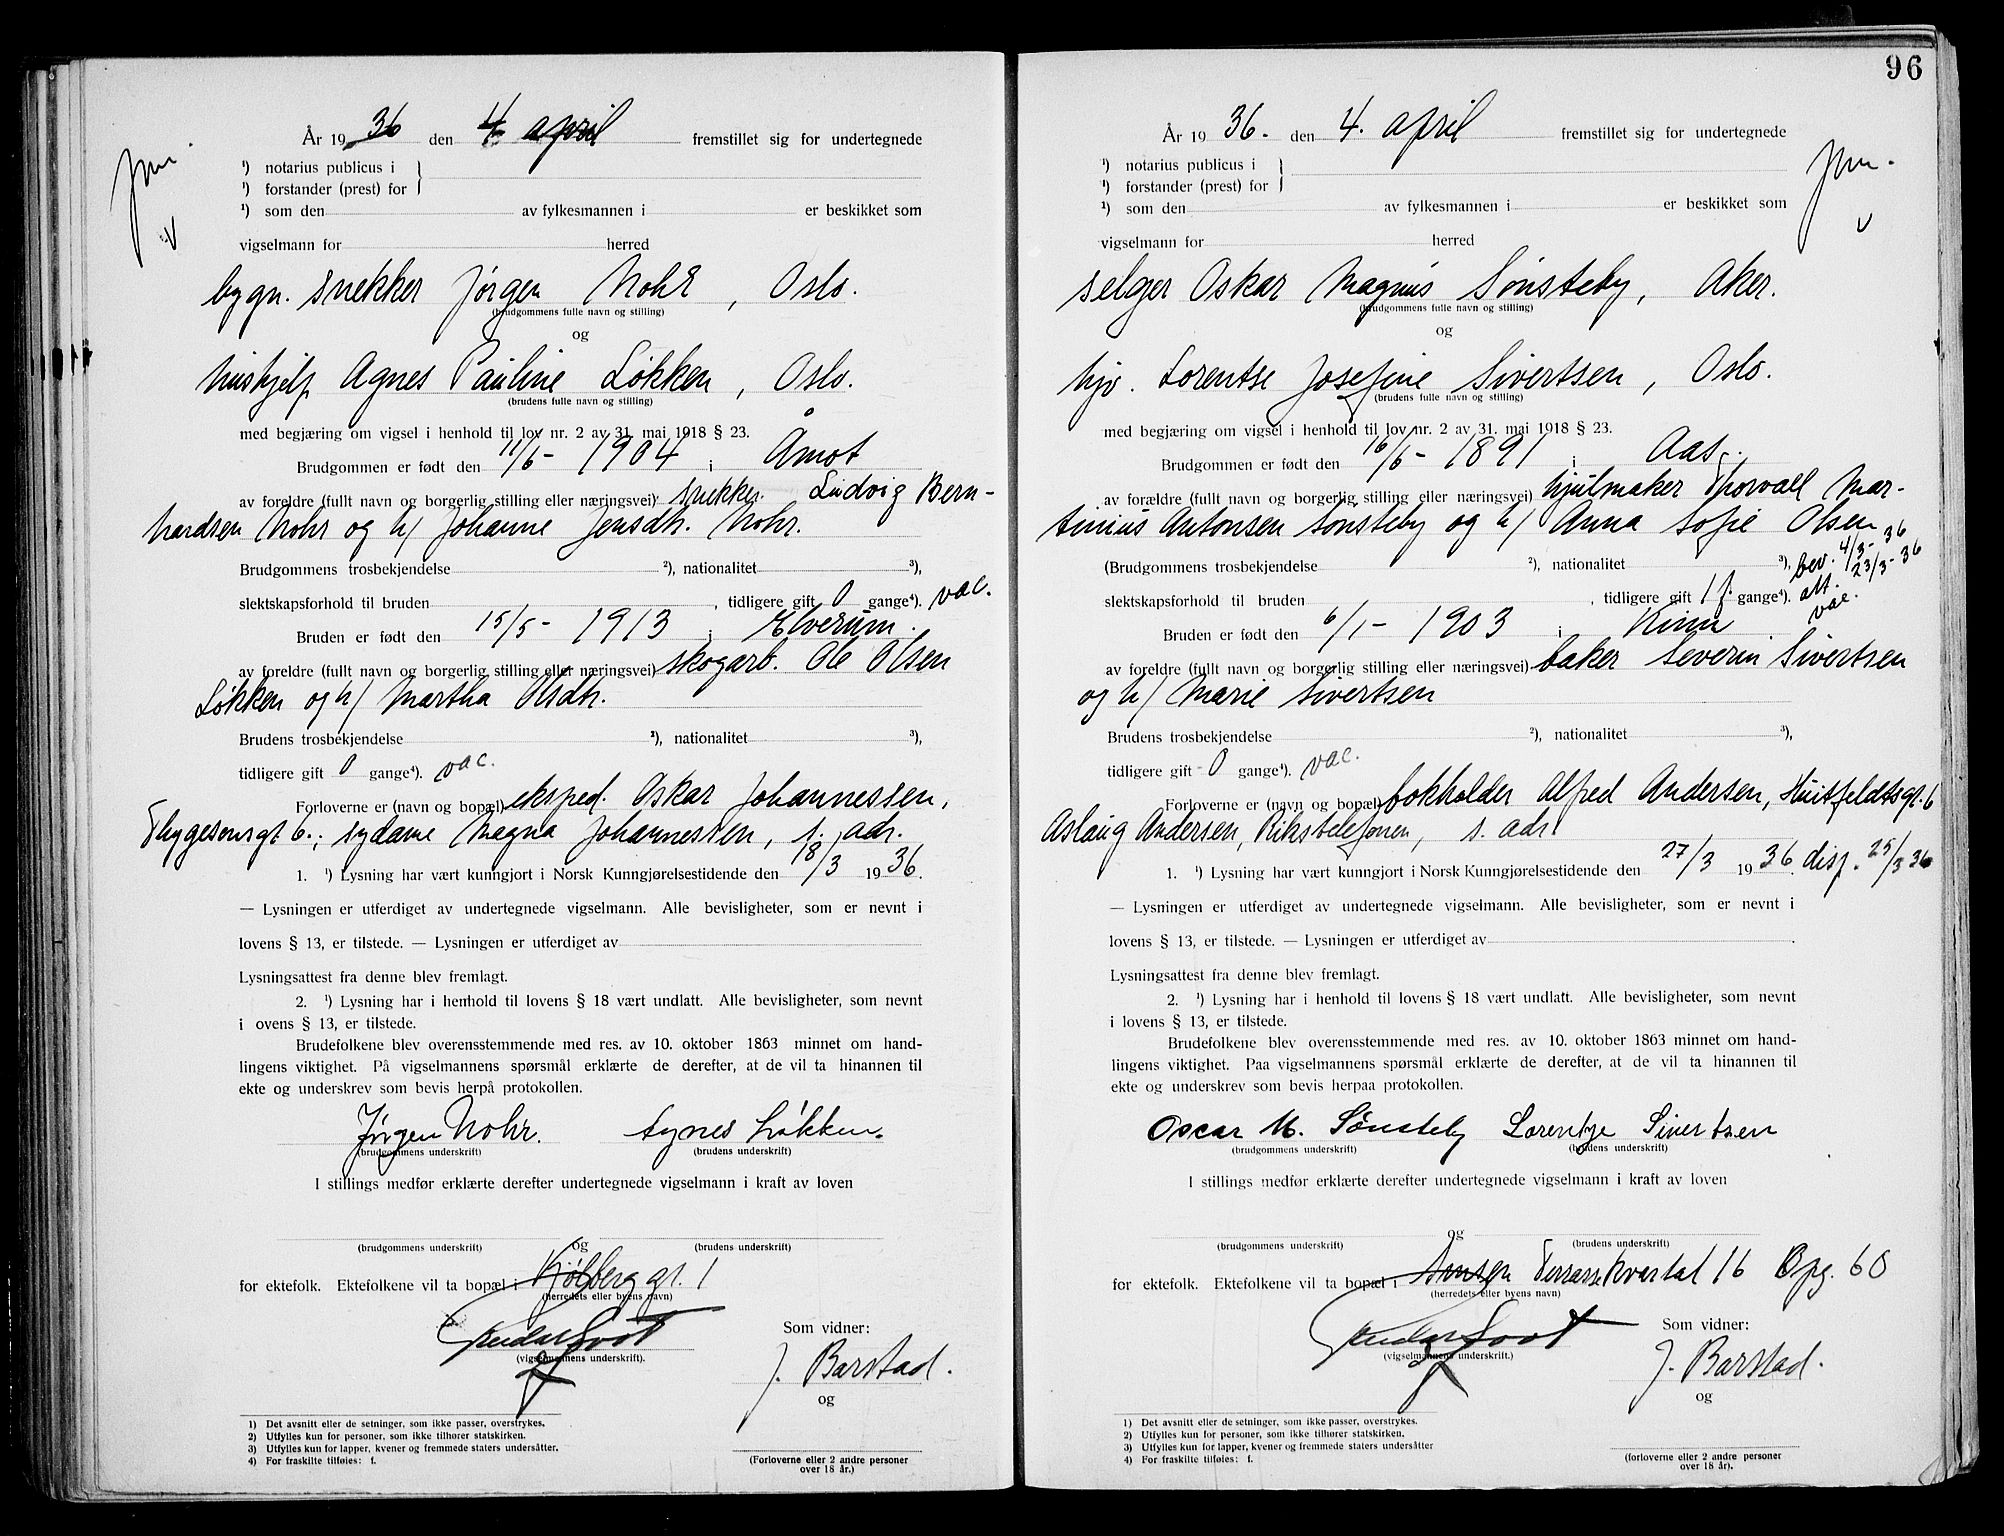 År 1936 den 4. april fremstillet sig for undertegnede
¹) notarius publicus i
¹) forstander (prest) for
¹) som den av fylkesmannen i er beskikket som
vigselmann for herred
bygn. snekker Jørgen Mohr, Oslo.
(brudgommens fulle navn og stilling)
og
hushjelp Agnes Pauline Løkken, Oslo.
(brudens fulle navn og stilling)
med begjæring om vigsel i henhold til lov nr. 2 av 31. mai 1918 § 23.
Brudgommen er født den 11/6- 1904 i Åmot
av foreldre (fullt navn og borgerlig stilling eller næringsvei) snekker Ludvig Bern-
hardsen Mohr og h/ Johanne Jensdtr. Mohr.
Brudgommens trosbekjendelse ²), nationalitet ³),
slektskapsforhold til bruden, tidligere gift 0 gange⁴). vac.
Bruden er født den 15/5- 1913 i Elverum.
av foreldre (fullt navn og borgerlig stilling eller næringsvei) skogarb. Ole Olsen
Løkken og h/ Martha Olsdtr.
Brudens trosbekjendelse ²), nationalitet ³),
tidligere gift 0 gange⁴). vac.
Forloverne er (navn og bopæl) eksped. Oskar Johannessen,
Thygesensgt 6.; sydame Magna Johannessen, s. adr.
1. ¹) Lysning har vært kunngjort i Norsk Kunngjørelsestidende den 18/3 1936.
— Lysningen er utferdiget av undertegnede vigselmann. Alle bevisligheter, som er nevnt i
lovens § 13, er tilstede. — Lysningen er utferdiget av
Lysningsattest fra denne blev fremlagt.
2. ¹) Lysning har i henhold til lovens § 18 vært undlatt. Alle bevisligheter, som nevnt
i ovens § 13, er tilstede.
Brudefolkene blev overensstemmende med res. av 10. oktober 1863 minnet om hand-
lingens viktighet. På vigselmannens spørsmål erklærte de derefter, at de vil ta hinannen til
ekte og underskrev som bevis herpå protokollen.
Jørgen Mohr. Agnes Løkken.
(brudgommens underskrift) (brudens underskrift)
I stillings medfør erklærte derefter undertegnede vigselmann i kraft av loven
og
(brudgommens underskrift) (brudens underskrift)
for ektefolk. Ektefolkene vil ta bopæl i Kjølberg gt. 1
(herredets eller byens navn)
Som vidner:
(vigselmannens underskrift).
J. Barstad.
og
1) Det avsnitt eller de setninger, som ikke passer, overstrykes.
2) Utfylles kun for personer, som ikke tilhører statskirken.
3) Utfylles kun for lapper, kvener og fremmede staters undersåtter.
4) For fraskilte tilføies: f.
(Forloverne eller 2 andre personer
over 18 år.)
96
År 1936. den 4. april fremstillet sig for undertegnede
¹) notarius publicus i
¹) forstander (prest) for
¹) som den av fylkesmannen i er beskikket som
vigselmann for herred
selger Oskar Magnus Sønsteby, Aker.
(brudgommens fulle navn og stilling)
og
hjv. Lorentse Josefine Sivertsen, Oslo.
(brudens fulle navn og stilling)
med begjæring om vigsel i henhold til lov nr. 2 av 31. mai 1918 § 23.
Brudgommen er født den 16/6- 1891 i Aas.
av foreldre (fullt navn og borgerlig stilling eller næringsvei) hjulmaker Thorvall Mar-
tinius Antonsen Sønsteby og h/ Anna Sofie Olsen
(Brudgommens trosbekjendelse ²), nationalitet ³), bev. 4/3-36
slektskapsforhold til bruden, tidligere gift 1 f. gange⁴). att. 23/3-36 vac.
Bruden er født den 6/1- 1903 i Kinn
av foreldre (fullt navn og borgerlig stilling eller næringsvei) baker Severin Sivertsen
og h/ Marie Sivertsen
Brudens trosbekjendelse ²), nationalitet ³),
tidligere gift 0 gange⁴). vac.
Forloverne er (navn og bopæl) bokholder Alfred Andersen, Huitfeldtsgt. 6
Aslaug Andersen, Rikstelefonen, s. adr.
1. ¹) Lysning har vært kunngjort i Norsk Kunngjørelsestidende den 27/3 1936. disp. 25/3 36
— Lysningen er utferdiget av undertegnede vigselmann. Alle bevisligheter, som er nevnt i
lovens § 13, er tilstede. — Lysningen er utferdiget av
Lysningsattest fra denne blev fremlagt.
2. ¹) Lysning har i henhold til lovens § 18 vært undlatt. Alle bevisligheter, som nevnt
i lovens § 13, er tilstede.
Brudefolkene blev overensstemmende med res. av 10. oktober 1863 minnet om hand-
lingens viktighet. Paa vigselmannens spørsmål erklærte de derefter, at de vil ta hinannen til
ekte og underskrev som bevis herpaa protokollen.
Oscar M. Sønsteby Lorentze Sivertsen
(brudgommens underskrift) (brudens underskrift)
I stillings medfør erklærte derefter undertegnede vigselmann i kraft av loven
og
(brudgommens underskrift) (brudens underskrift)
for ektefolk. Ektefolkene vil ta bopæl i Terrassekvartal 16 Opg. 60
(herredets eller byens navn)
Som vidner:
(vigselmannens underskrift.)
J. Barstad.
og
1) Det avsnitt eller de setninger, som ikke passer, overstrykes.
2) Utfylles kun for personer, som ikke tilhører statskirken.
3) Utfylles kun for lapper, kvener og fremmede staters undersåtter
4) For fraskilte tilføies: f.
(forloverne eller 2 andre personer
over 18 år).